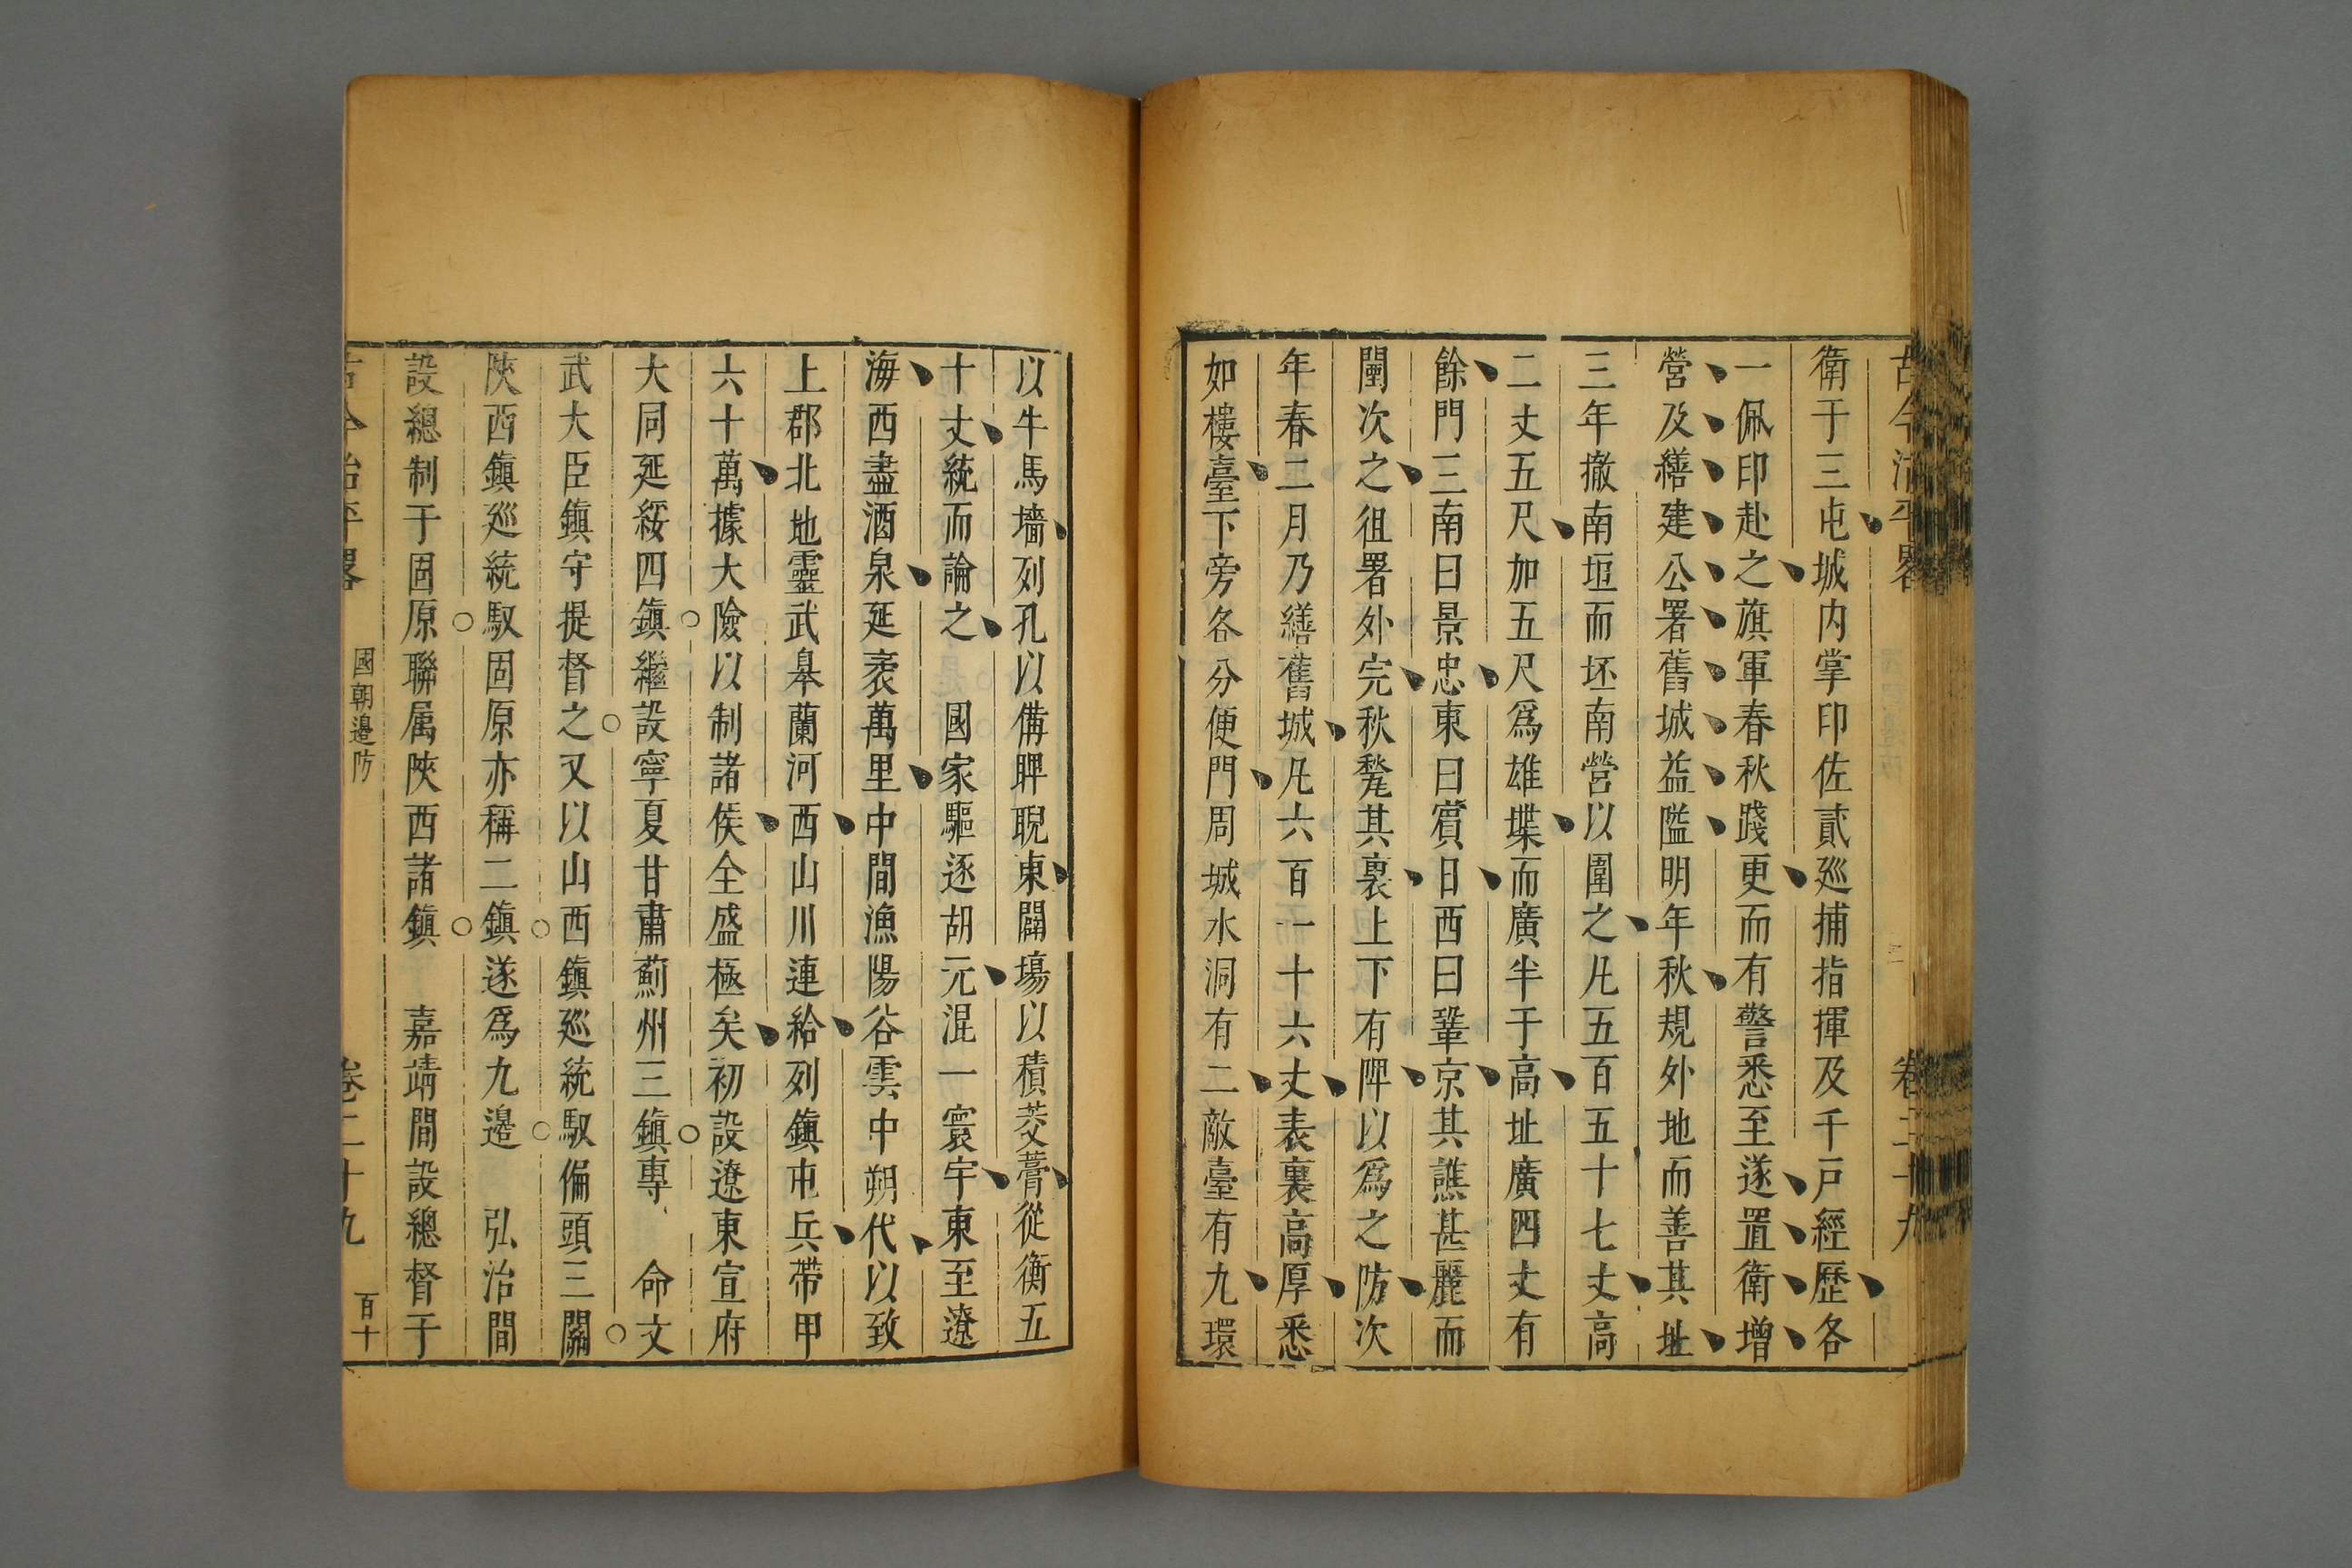 古今治平畧 卷二十九
衛于三屯城内掌印佐貳廵捕指揮及千戸經歷各
一佩印赴之旗軍春秋踐更而有警悉至遂置衛增
營及繕建公署舊城益隘明年秋規外地而善其址
三年撤南垣而坯南營以圍之凡五百五十七丈高
二丈五尺加五尺爲雄堞而廣半于高址廣四丈有
餘門三南曰景忠東曰賓日西曰鞏京其譙甚麗而
闉次之徂署外完秋甃其裏上下有陴以爲之防次
年春二月乃繕舊城凡六百一十六丈表裏高厚悉
如樓臺下旁各分便門周城水洞有二敵臺有九環
以牛馬墻列孔以備睥睨東闢塲以積茭藁從衡五
十丈統而論之　國家驅逐胡元混一寰宇東至遼
海西盡酒泉延袤萬里中間漁陽谷雲中朔代以致
上郡北地靈武皋蘭河西山川連給列鎮屯兵帶甲
六十萬據大險以制諸侯全盛極矣初設遼東宣府
大同延綏四鎮繼設寧夏甘肅薊州三鎮專　命文
武大臣鎮守提督之又以山西鎮廵統馭偏頭三關
陜西鎮廵統馭固原亦稱二鎮遂爲九邊　弘治間
設總制于固原聯属陜西諸鎮　嘉靖間設總督于
古今治平畧 國朝邉防 卷二十九 百十